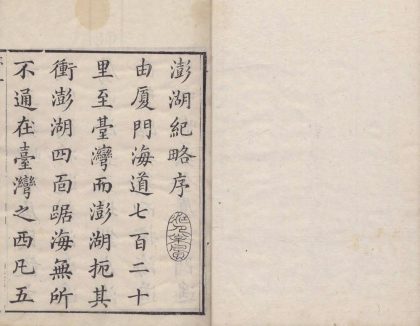 澎湖紀略序
由厦門海道七百二十
里至臺灣而澎湖扼其
衝澎湖四面踞海無所
不通在臺灣之西凡五